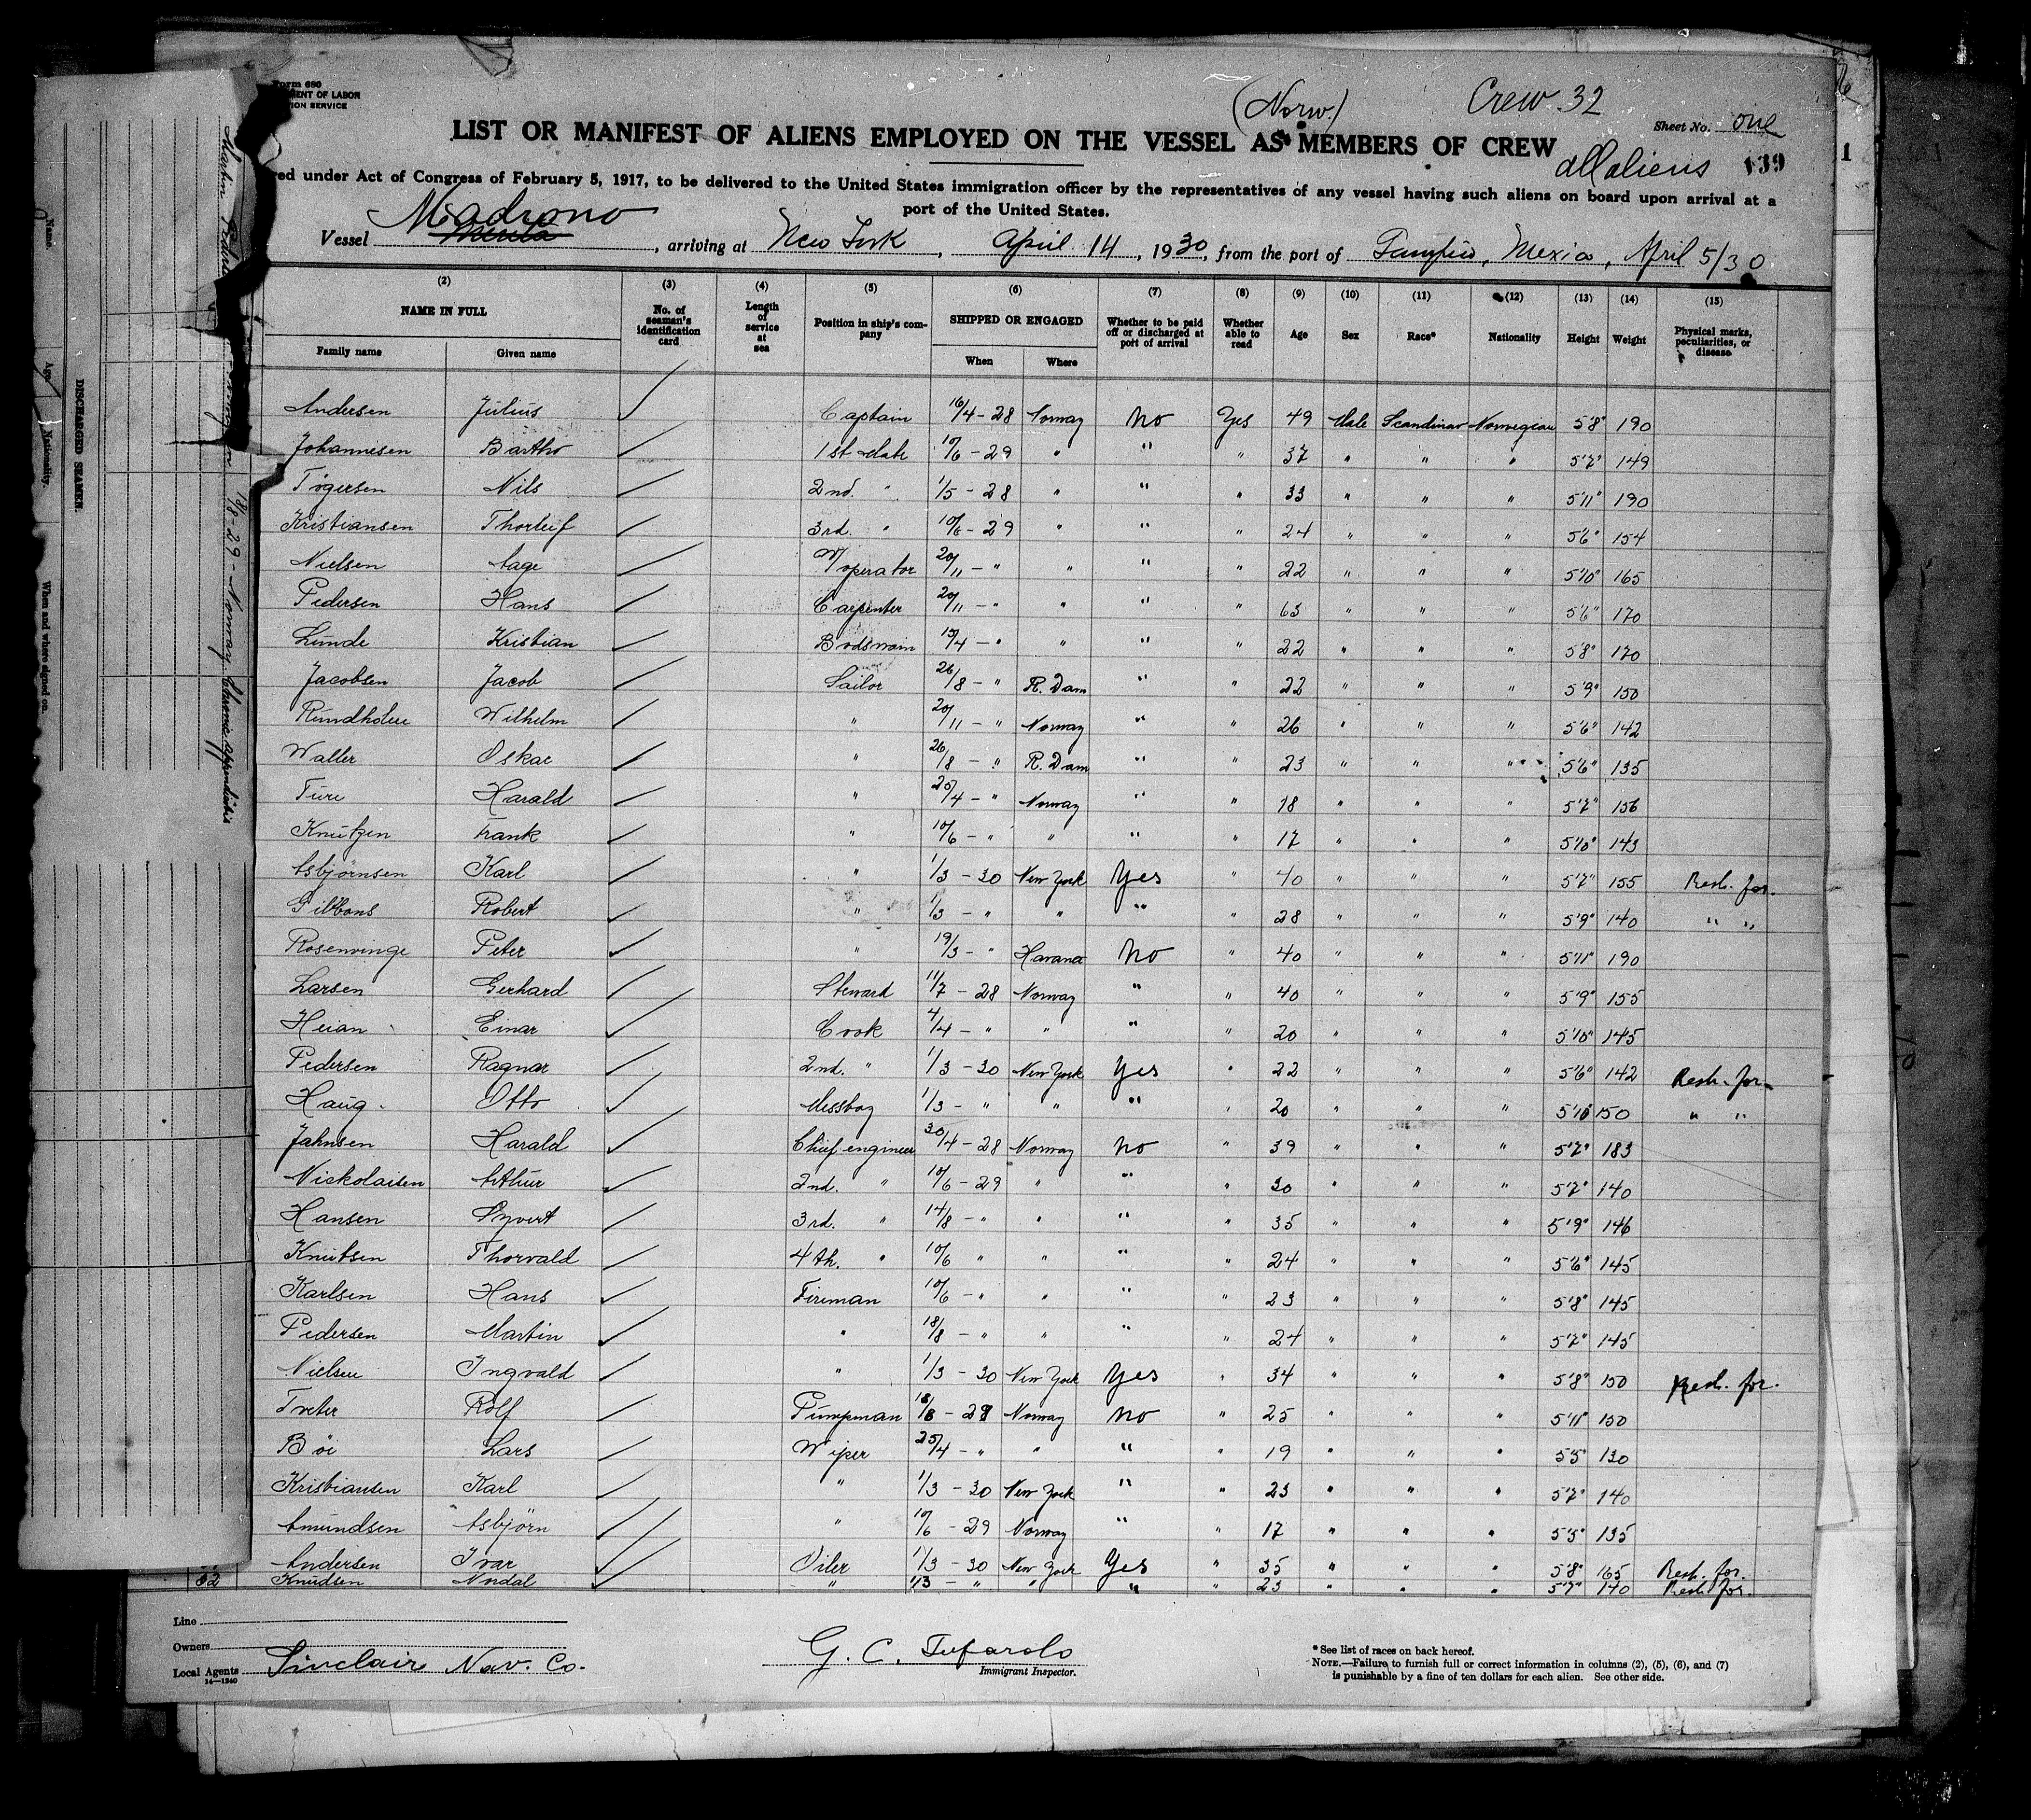 Form 680
MENT OF LABOR
ION SERVICE
(Norw.)
Crew 32
Sheet No. one
LIST OR MANIFEST OF ALIENS EMPLOYED ON THE VESSEL AS MEMBERS OF CREW
all aliens
139
1
red under Act of Congress of February 5, 1917, to be delivered to the United States immigration officer by the representatives of any vessel having such aliens on board upon arrival at a
port of the United States.
Vessel Madrono, arriving at New York, April 14, 1930, from the port of Tampico, Mexico, April 5/30
(2) (3) (4) (5) (6) (7) (8) (9) (10) (11) (12) (13) (14) (15)
NAME IN FULL No. of seaman's identification card Length of service at sea Position in ship's company SHIPPED OR ENGAGED Whether to be paid off or discharged at port of arrival Whether able to read Age Sex Race* Nationality Height Weight Physical marks, peculiarities, or disease
Family name Given name When Where
Andersen Julius Captain 16/4-28 Norway No Yes 49 Male Scandinav Norwegian 5'8" 190
Johannesen Bartho 1st Mate 10/6-29 " " " 37 " " " 5'7" 149
Tögersen Nils 2nd. " 1/5-28 " " " 33 " " " 5'11" 190
Kristiansen Thorleif 3rd. " 10/6-29 " " " 24 " " " 5'6" 154
Nielsen Aage W/operator 20/11-" " " " 22 " " " 5'10" 165
Pedersen Hans Carpenter 20/11-" " " " 63 " " " 5'6" 170
Lunde Kristian Bodswain 19/4-" " " " 22 " " " 5'8" 170
Jacobsen Jacob Sailor 26/8-" R. Dam " " 22 " " " 5'9" 150
Rundholm Wilhelm " 20/11-" Norway " " 26 " " " 5'6" 142
Waller Oskar " 26/8-" R. Dam " " 23 " " " 5'6" 135
Ture Harald " 25/4-" Norway " " 18 " " " 5'7" 156
Knutzen Frank " 10/6-" " " " 17 " " " 5'10" 143
Asbjørnsen Karl " 1/3-30 New York Yes " 40 " " " 5'7" 155 Resh. for.
Gibbons Robert " 1/3-" " " " 28 " " " 5'9" 140 " "
Rosenvinge Peter " 19/3-" Havana No " 40 " " " 5'11" 190
Larsen Gerhard Steward 11/7-28 Norway " " 40 " " " 5'9" 155
Heian Einar Cook 4/4-" " " " 20 " " " 5'10" 145
Pedersen Ragnar 2nd. " 1/3-30 New York Yes " 22 " " " 5'6" 142 Resh. for.
Haug Otto Messboy 1/3-" " " " 20 " " " 5'10" 150 " "
Jahnsen Harald Chief engineer 30/4-28 Norway No " 39 " " " 5'7" 183
Nickolaisen Arthur 2nd. " 10/6-29 " " " 30 " " " 5'7" 140
Hansen Syvert 3rd. " 14/8-" " " " 35 " " " 5'9" 146
Knutsen Thorvald 4th. " 10/6 " " " " 24 " " " 5'6" 145
Karlsen Hans Fireman 10/6-" " " " 23 " " " 5'8" 145
Pedersen Martin " 18/8-" " " " 24 " " " 5'7" 145
Nielsen Ingvald " 1/3-30 New York Yes " 34 " " " 5'8" 150 Resh. for.
Treter Rolf Pumpman 18/8-29 Norway No " 25 " " " 5'11" 150
Böe Lars Wiper 25/4-" " " " 19 " " " 5'5" 130
Kristiansen Karl " 1/3-30 New York " " 23 " " " 5'7" 140
Amundsen Asbjörn " 10/6-29 Norway " " 17 " " " 5'5" 135
Andersen Ivar Oiler 1/3-30 New York Yes " 35 " " " 5'8" 165 Resh. for.
32 Knudsen Nordal " 1/3-" " " " 23 " " " 5'7" 140 Resh. for.
Line
Owners
Local Agents Sinclair Nav. Co.
14—1240
G. C. Tufarolo
Immigrant Inspector.
*See list of races on back hereof.
NOTE.—Failure to furnish full or correct information in columns (2), (5), (6), and (7)
is punishable by a fine of ten dollars for each alien. See other side.
DISCHARGED SEAMEN.
Name
Age
Nationality.
When and where signed on.
Martin Pedersen
18/8-29-Norway. Appendicitis